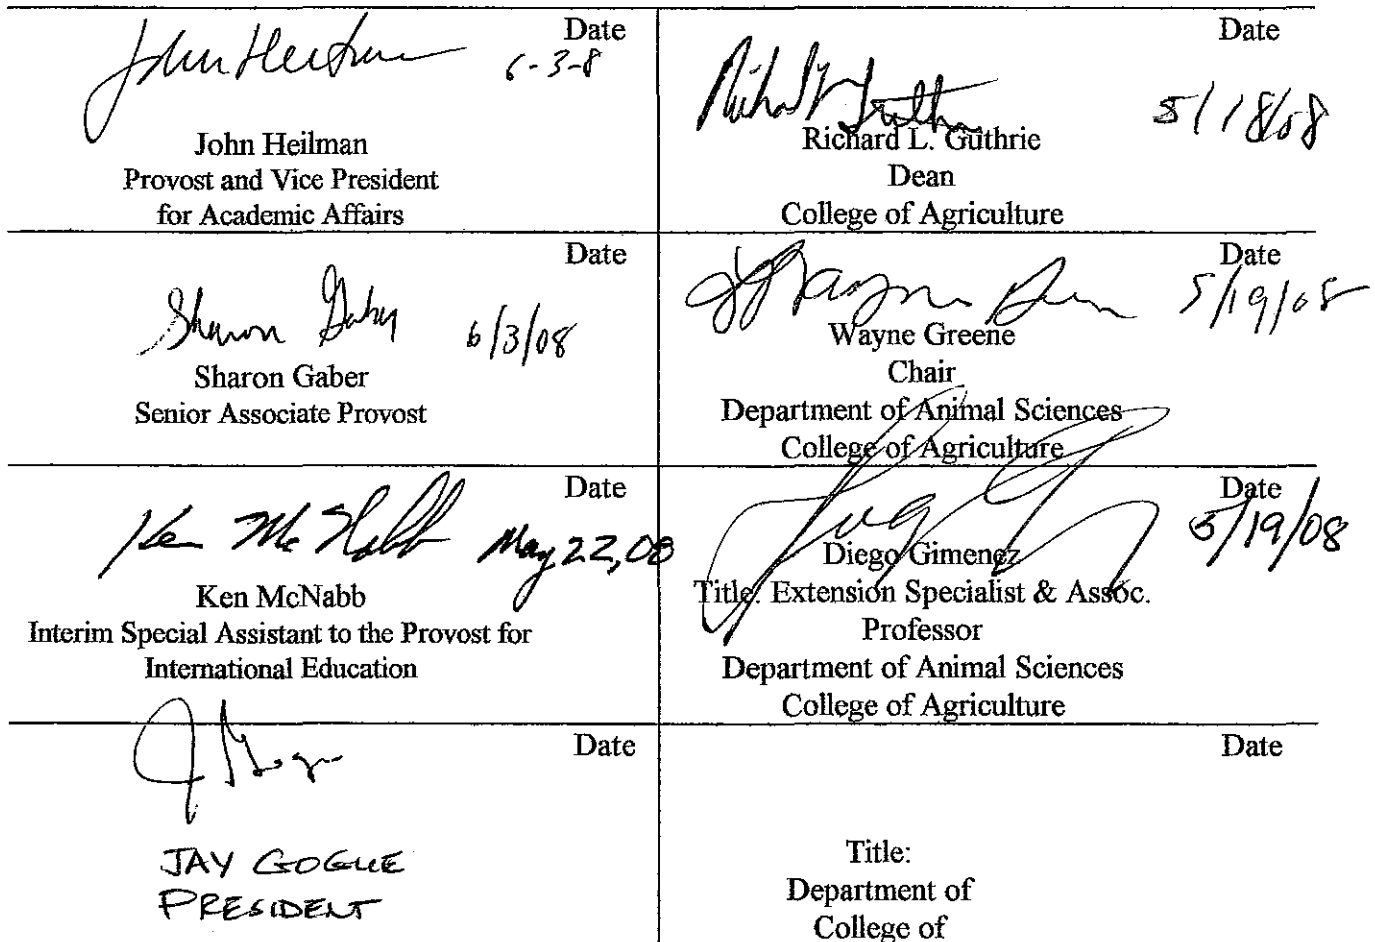 Date
John Heilman 6-3-8
John Heilman
Provost and Vice President
for Academic Affairs
Date
5/18/08
Richard L. Guthrie
Dean
College of Agriculture
Date
Sharon Gaber 6/3/08
Sharon Gaber
Senior Associate Provost
Date
Wayne 5/19/08
Wayne Greene
Chair
Department of Animal Sciences
College of Agriculture
Date
Ken McNabb May 22, 08
Ken McNabb
Interim Special Assistant to the Provost for
International Education
Date
5/19/08
Diego Gimenez
Title: Extension Specialist & Assoc.
Professor
Department of Animal Sciences
College of Agriculture
Date
JAY GOGUE
PRESIDENT
Date
Title:
Department of
College of